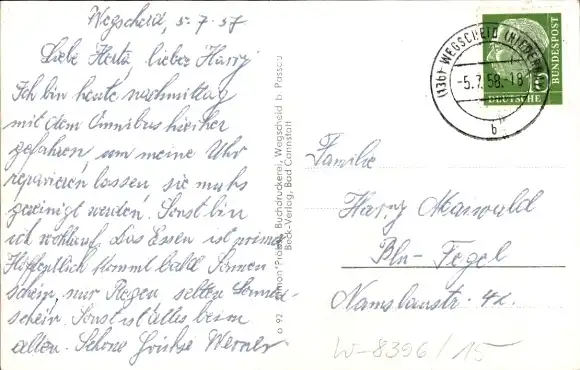 Wegscheid, 5.7.57
Liebe Herta, lieber Harry
Ich bin heute nachmittag
mit dem Omnibus hierher
gefahren, um meine Uhr
reparieren lassen, sie muß
gereinigt werden. Sonst bin
ich wohlauf. Das Essen ist prima
Hoffentlich kommt bald Sonnen
schein, nur Regen selten Sonnen-
schein. Sonst ist alles beim
alten. Schöne Grüße Werner
Buchdruckerei, Wegscheid b. Passau
Beck-Verlag, Bad Cannstatt
(13b) WEGSCHEID
-5.7.58.-18
b
DEUTSCHE
BUNDESPOST
10
Familie
Harry Maiwald
Bln-Tegel
Namslaustr. 42.
W-8396/15